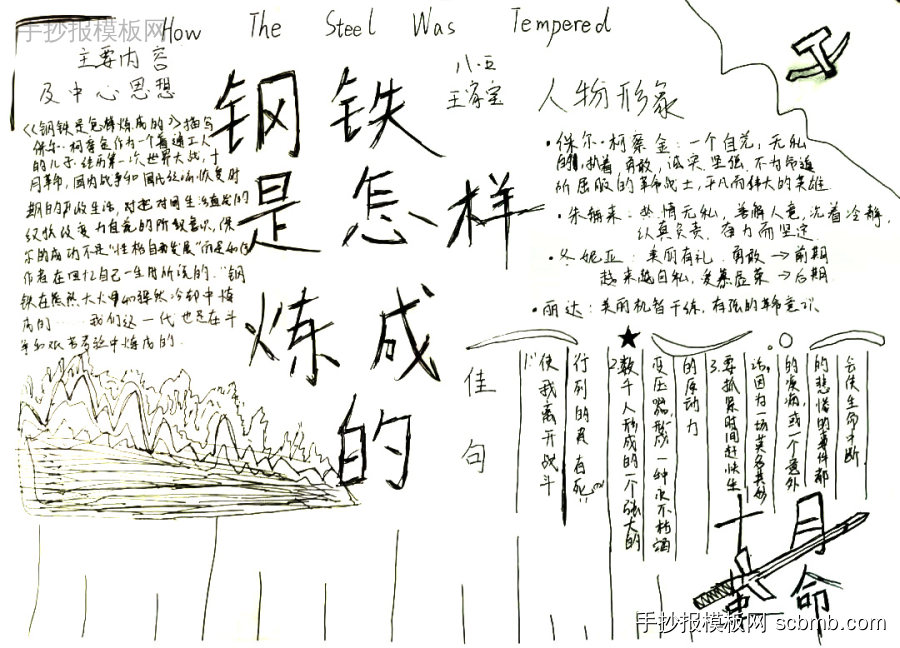 手抄报模板网
How The Steel Was Tempered
主要内容
及中心思想
八.五
钢铁
是怎样
炼成
的
《《钢铁是怎样炼成的》描写
保尔·柯察金作为一个普通工人
的儿子,经历第一次世界大战,十
月革命,国内战争和国民经济恢复时
尔的成功不是“性格自动发展”而是
作者在回忆自己一生时所说的,“钢
铁在熊熊大火里和骤然冷却中炼
成的……我们这一代也是在斗
中炼成的.
人物形象
·保尔·柯察金:一个自觉,无私
的,执着,勇敢,诚实,坚强,不为命运
所屈服的革命战士,平凡而伟大的英雄
·朱赫来:热情无私,善解人意,沈着冷静,
认真负责,奋力而坚定
·冬妮亚:美丽有礼.勇敢→前期
越来越自私,爱慕虚荣→后期
·丽达:美丽机智干练,有强的革命意识
佳句
1.使我离开战斗
行列的只有死
2.数千人形成的一个强大的
变压器,形成一种永不枯涸
的原动力
3.要抓紧时间赶快生
活,因为一场莫名其妙
的疾病,或一个意外
的悲惨的事件都
会使生命中断.
十月
革命
手抄报模板网 scbmb.com